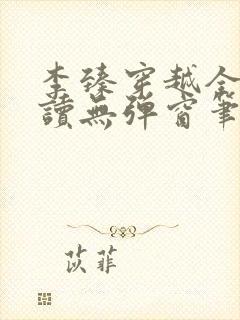 李臻穿越全
讀無彈窗筆
苡菲